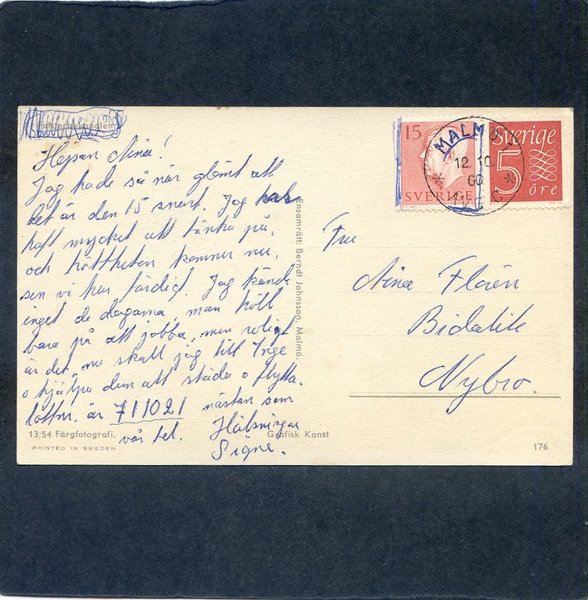 Hejsan Nina!
Jag hade så när glömt att
det är den 15 snart. Jag har
haft mycket att tänka på,
och tröttheten kommer nu,
sen vi har färdigt. Jag kände
inget de dagarna, man höll
bara på att jobba, men roligt
är det, nu skall jag till Inge
o hjälpa dem att städa o flytta.
lottnr. är 711021 nästan som
vår tel. Hälsningar
Signe.
13/54 Färgfotografi.
Grafisk Konst
PRINTED IN SWEDEN
176
Ensamrätt: Berndt Johnsson, Malmö.
15
SVERIGE
MALMÖ
12 10
60
Sverige
5
öre
Fru
Nina Florén
Nybro.